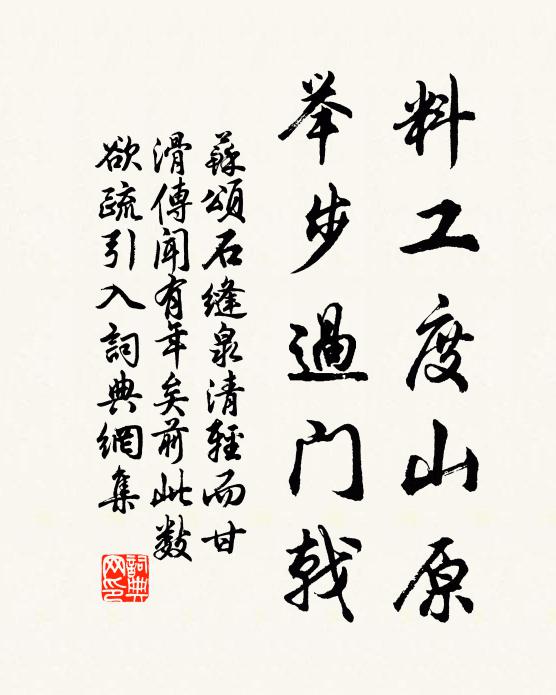 料工度山原
举步過门戟
蘇頌石縫泉清輕而甘
滑傳聞有年矣前此数
欲疏引入詞典網集
詞典
网印